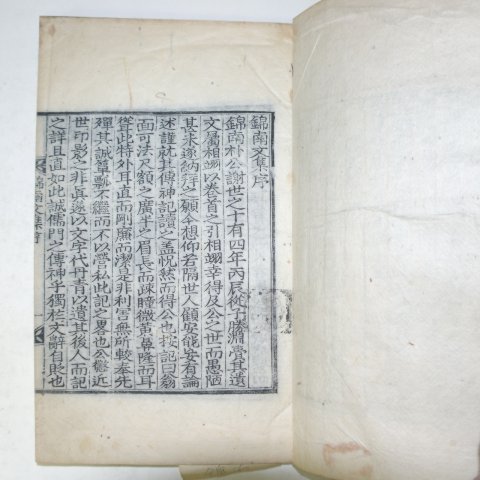 錦南文集序
錦南朴公謝世之十有四年丙辰從子勝淵賫其遺
文屬相翊以卷首之引相翊幸得及公之世而愚陋
甚未遂納拜之願今想仰若隔世人顧安能妄有論
述謹就其傳神記讀之盖怳然而得公也按記曰翁
面可尺額之廣半之眉長而疎瞳微黃準隆而耳
聳此特外耳直而剛廉而潔是非利害無所較奉先
殫其誠簞瓢不繼而不以滯私此記之畧也公嘗近
世印影之非眞遂以文字代丹青以遺其後人而記
之詳且直如此誠儒門之傳神乎獨於文辭自貶也
錦南文集序